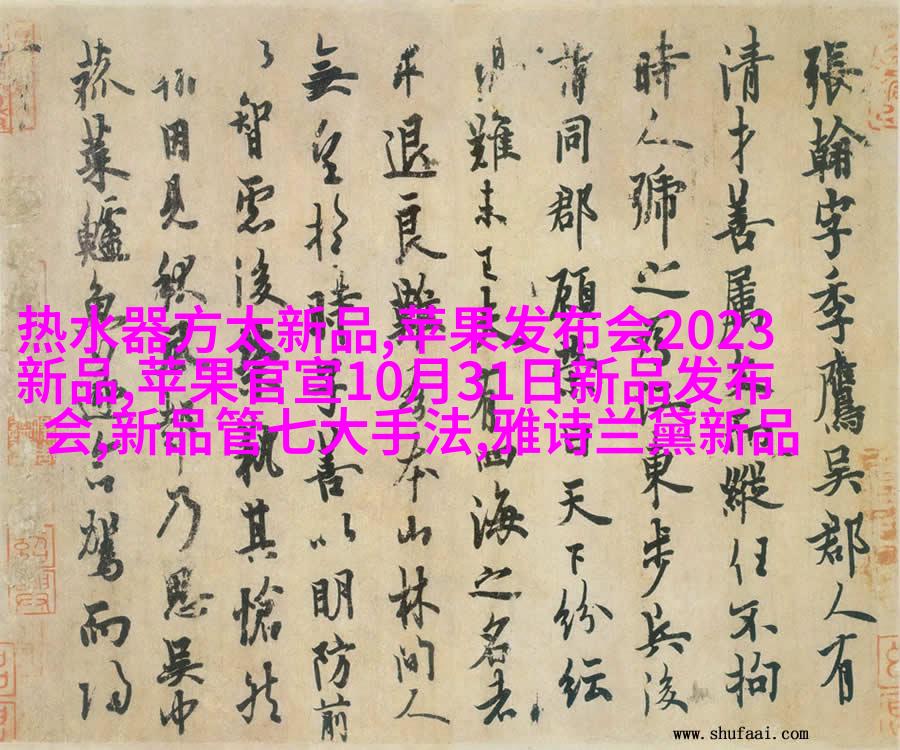 張翰字季鷹吳郡人有
清才善属文而縱任不拘
時人號之為江東步兵後
同郡顧榮曰天下紛紜
難未已夫有四海之名者
求退良難吾本山林間人
無望於時子善以明防前
智慮後榮執其愴然
翰因見秋風起乃思吳中
菰菜鱸魚遂命駕而歸
热水器方太新品,苹果发布会2023
新品,苹果官宣10月31日新品发布
会,新品管七大手法,雅诗兰黛新品
www.shufaai.com